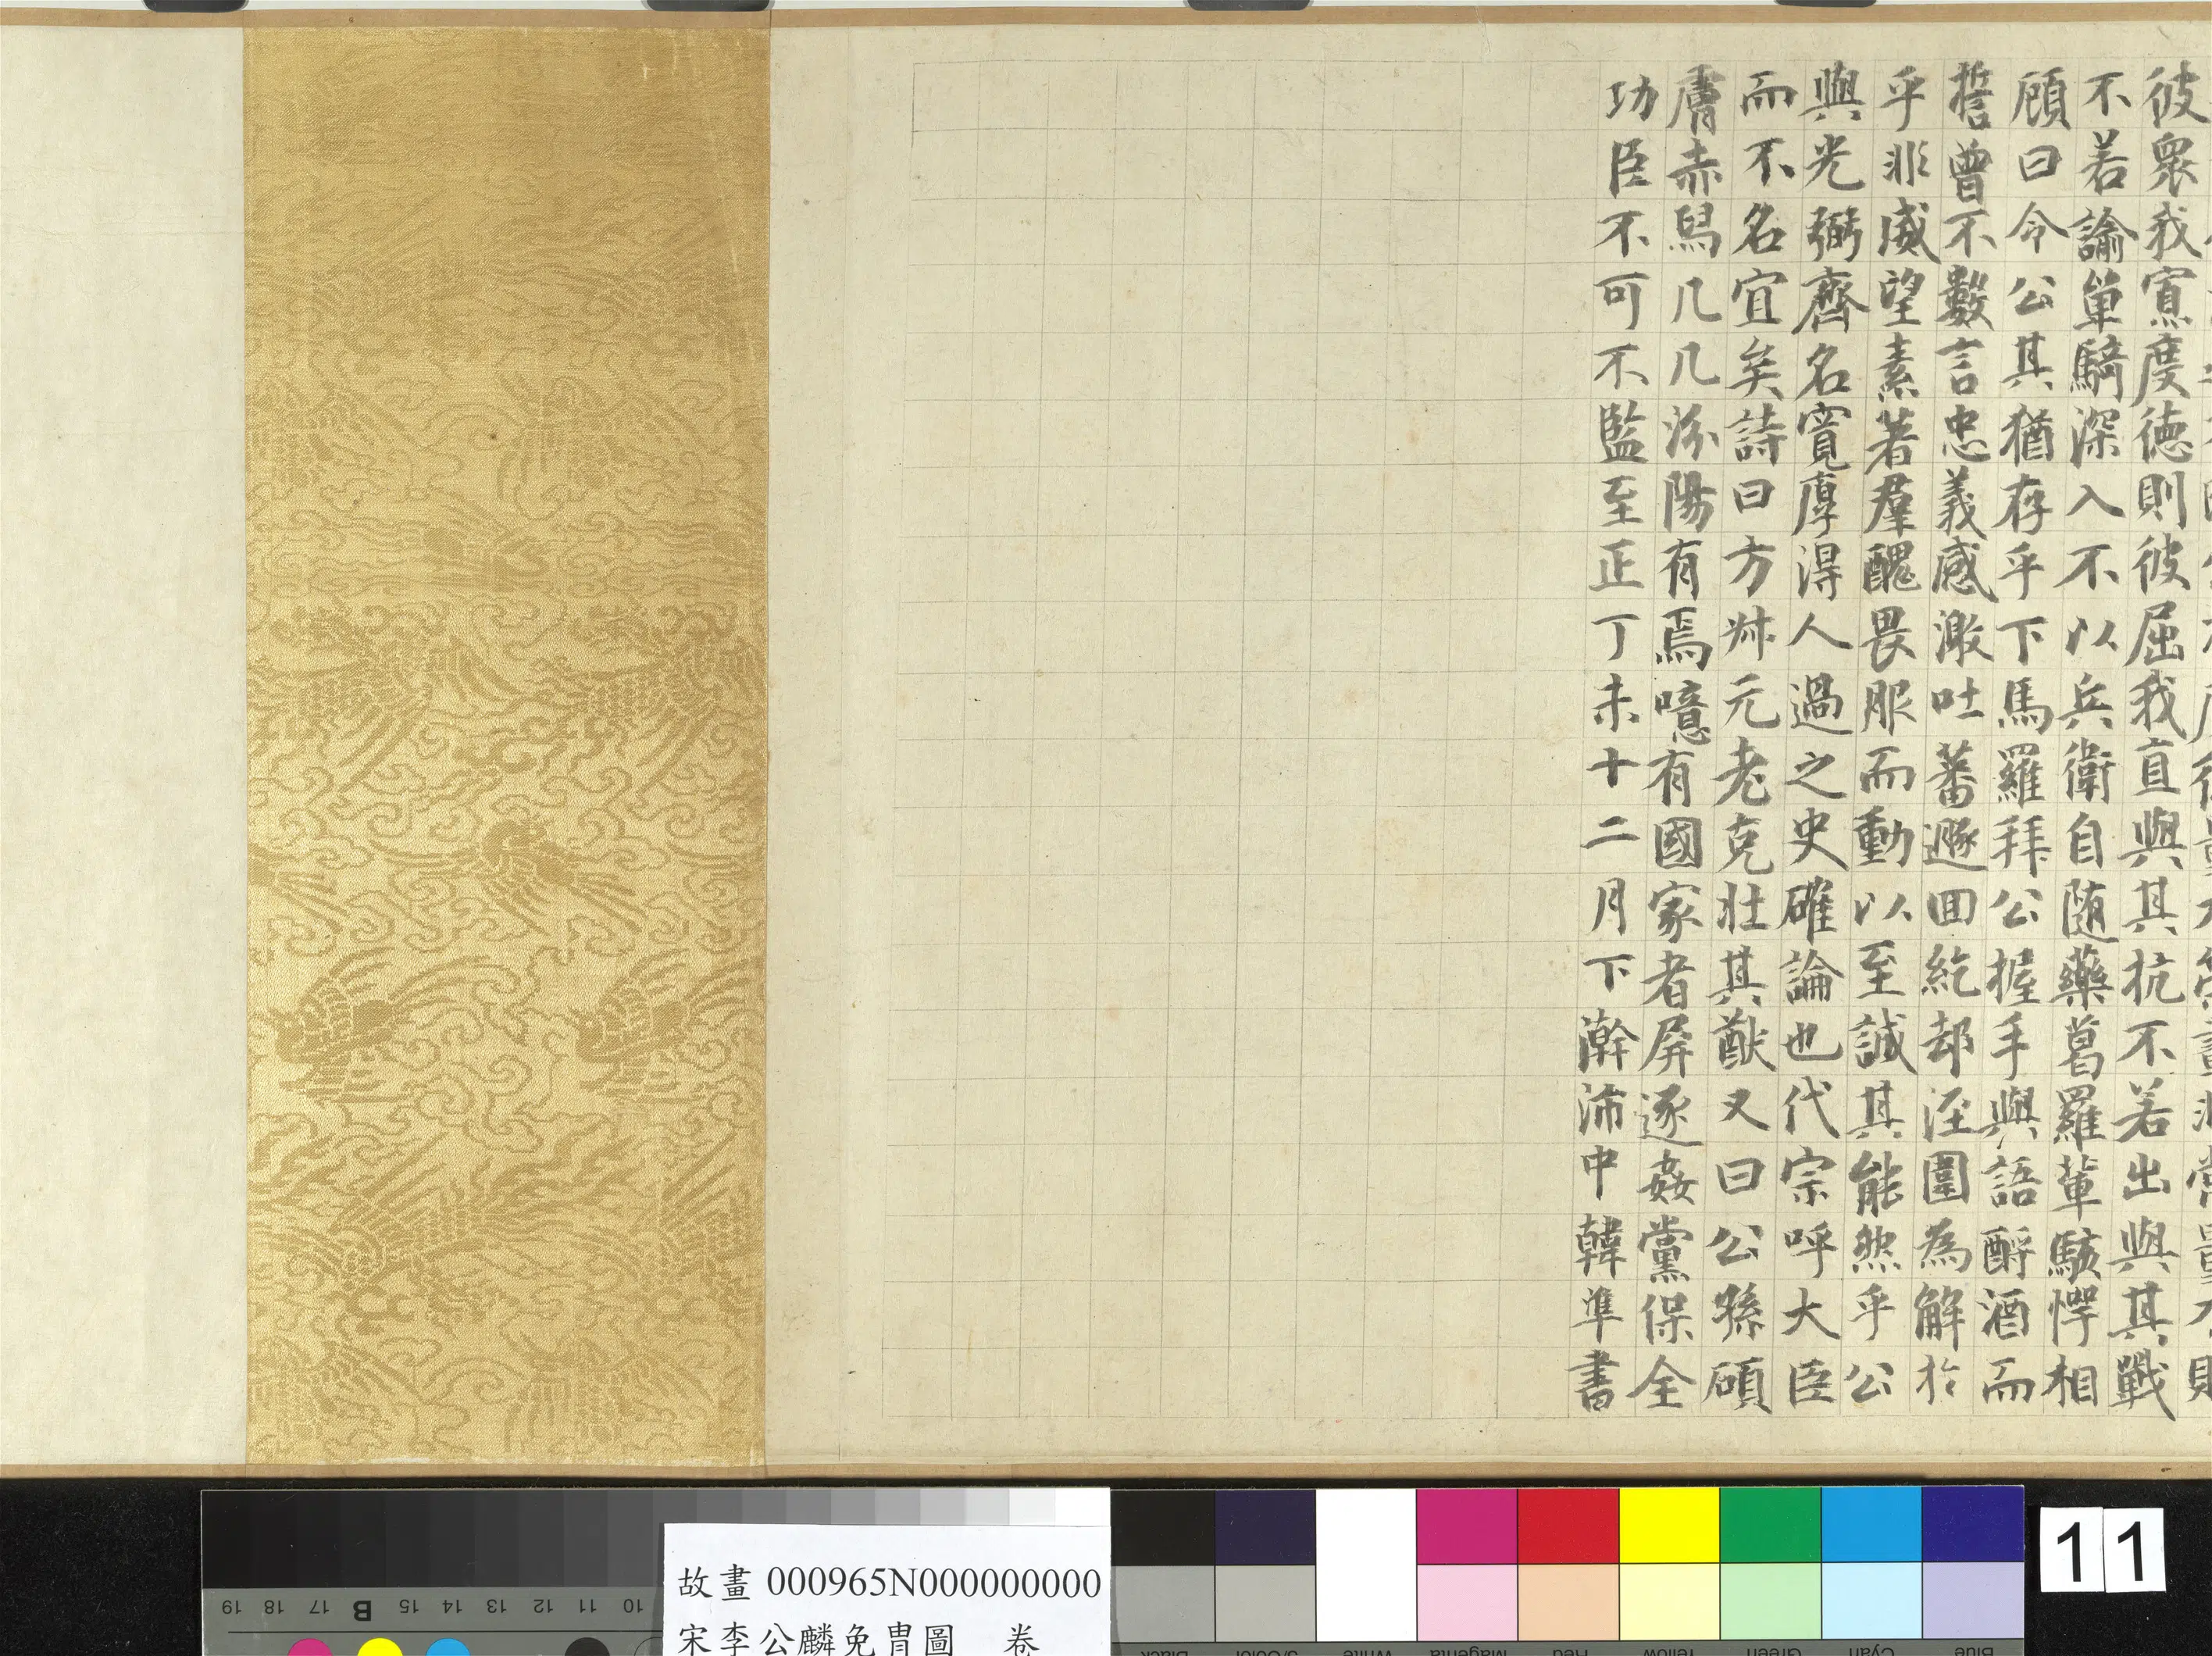 彼衆我寡度德則彼屈我直與其抗不若出與其戰
不若諭單騎深入不以兵衛自随藥葛羅軰駭愕相
顧曰令公其猶存乎下馬羅拜公握手與語酹酒而
誓曾不數言忠義感激吐蕃遯囬紇却涇圍為解於
乎非威望素著羣醜畏服而動以至誠其能然乎公
與光弼齊名寬厚得人過之史確論也代宗呼大臣
而不名宜矣詩曰方叔元老克壮其猷又曰公孫碩
膚赤舄几几汾陽有焉噫有國家者屏逐姦黨保全
功臣不可不監至正丁未十二月下澣沛中韓準書
故畫 000965N000000000
宋李公麟免胄圖 卷
11
19 18 17 B 15 14 13 12 11 10
Black 3/Color White Magenta Red Yellow Green Cyan Blue